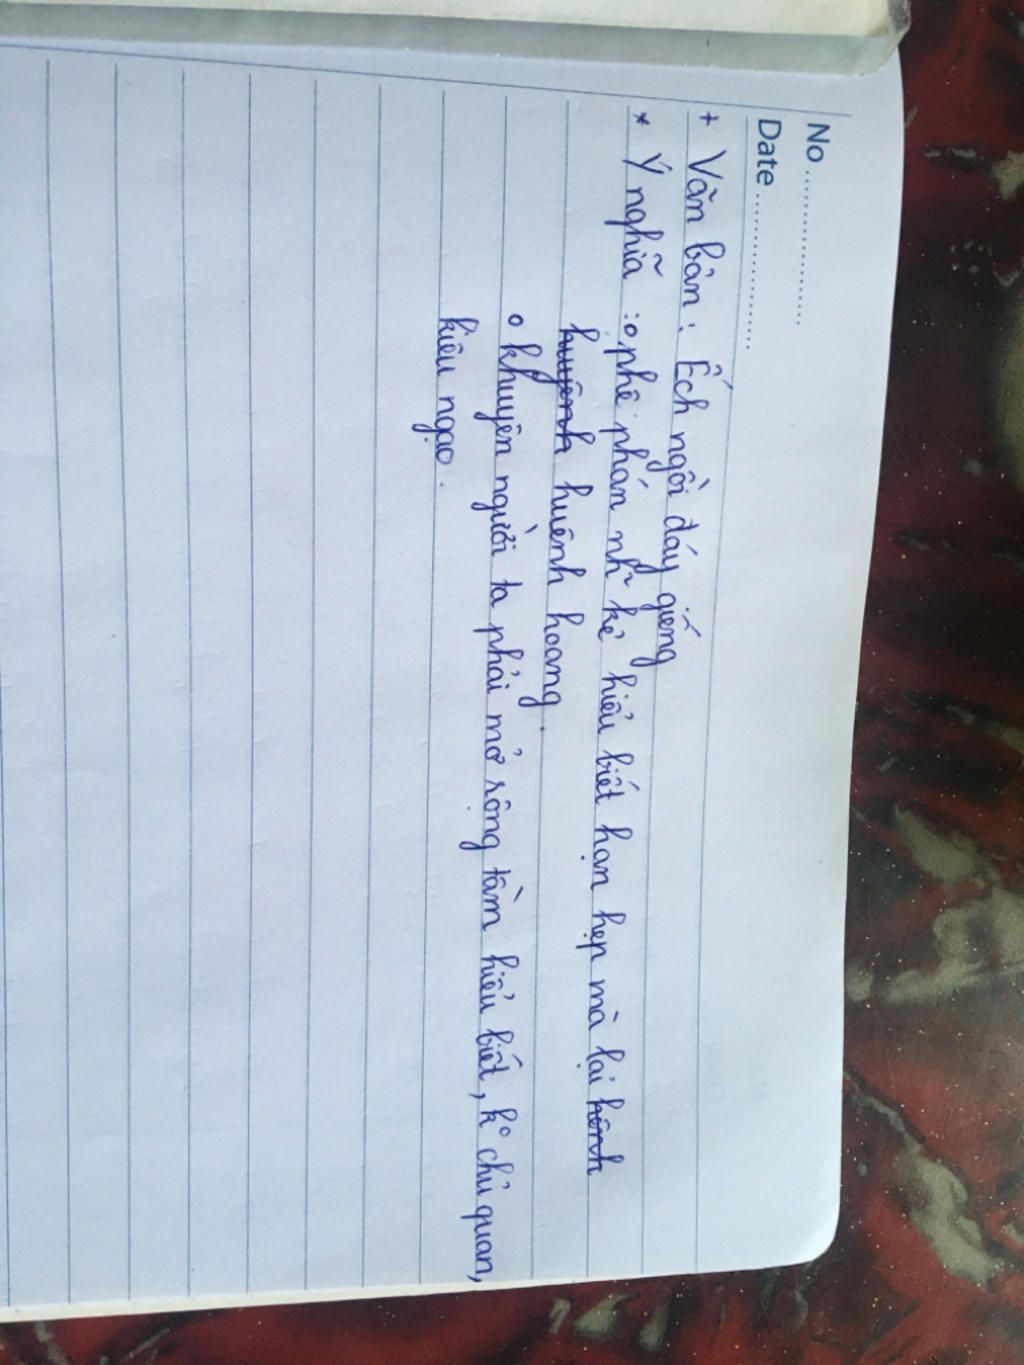 No ....................
Date ....................
+ Văn bản : Ếch ngồi đáy giếng
* Ý nghĩa : o phê phán nh~ kẻ hiểu biết hạn hẹp mà lại hênh
huyênh huênh hoang.
o khuyên người ta phải mở rộng tầm hiểu biết, ko chủ quan,
kiêu ngạo.